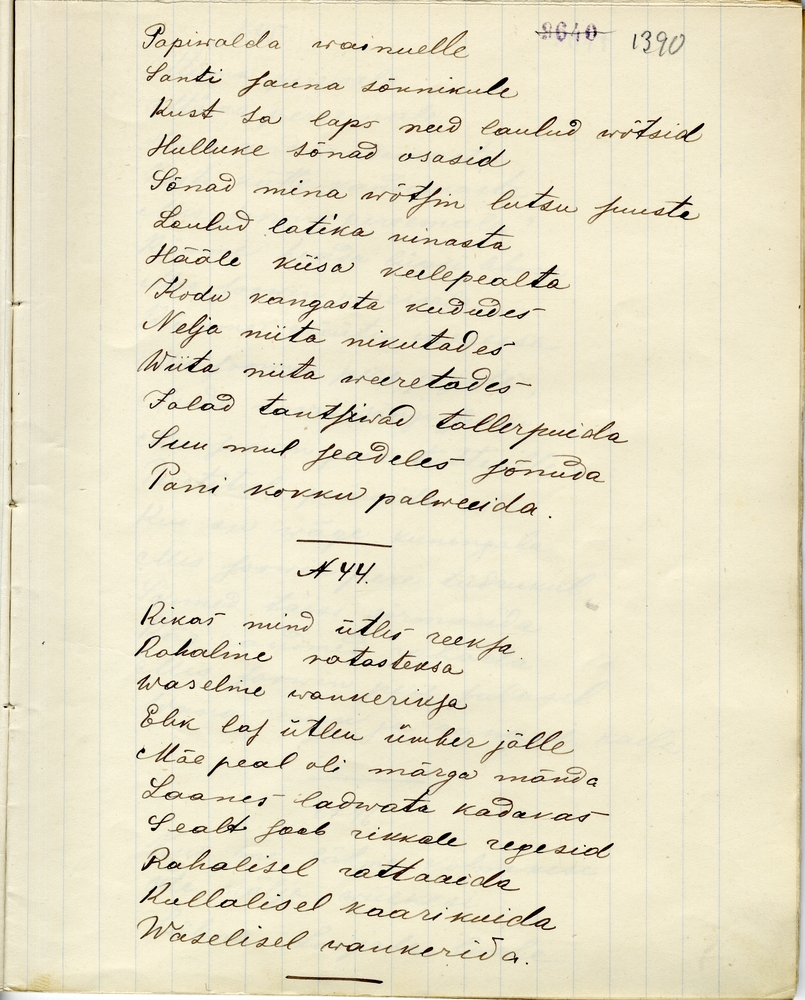 8640 1390
Papiwalda wainuelle
Santi sauna sõnnikule
Kust sa laps need laulud wõtsid
Hulluke sõnad osasid
Sõnad mina wõtsin lutsu suusta
Laulud latika ninasta
Hääle kiisa keelepealta
Kodu kangasta kududes
Nelja niita nikutades
Wiita niita weeretades
Jalad tantsiwad tallerpuida
Suu mul seadeles sõnuda
Pani kokku palweida.
N 44.
Rikas mind ütles reeksa
Rahaline ratasteksa
Waseline wankeriksa
Ehk las ütleu ümber jälle
Mäe peal oli märga mända
Laanes ladwata kadakas
Sealt saab rikkale regesid
Rahalisel rattaaida
Kullalisel kaarikuida
Waselisel wankerida.